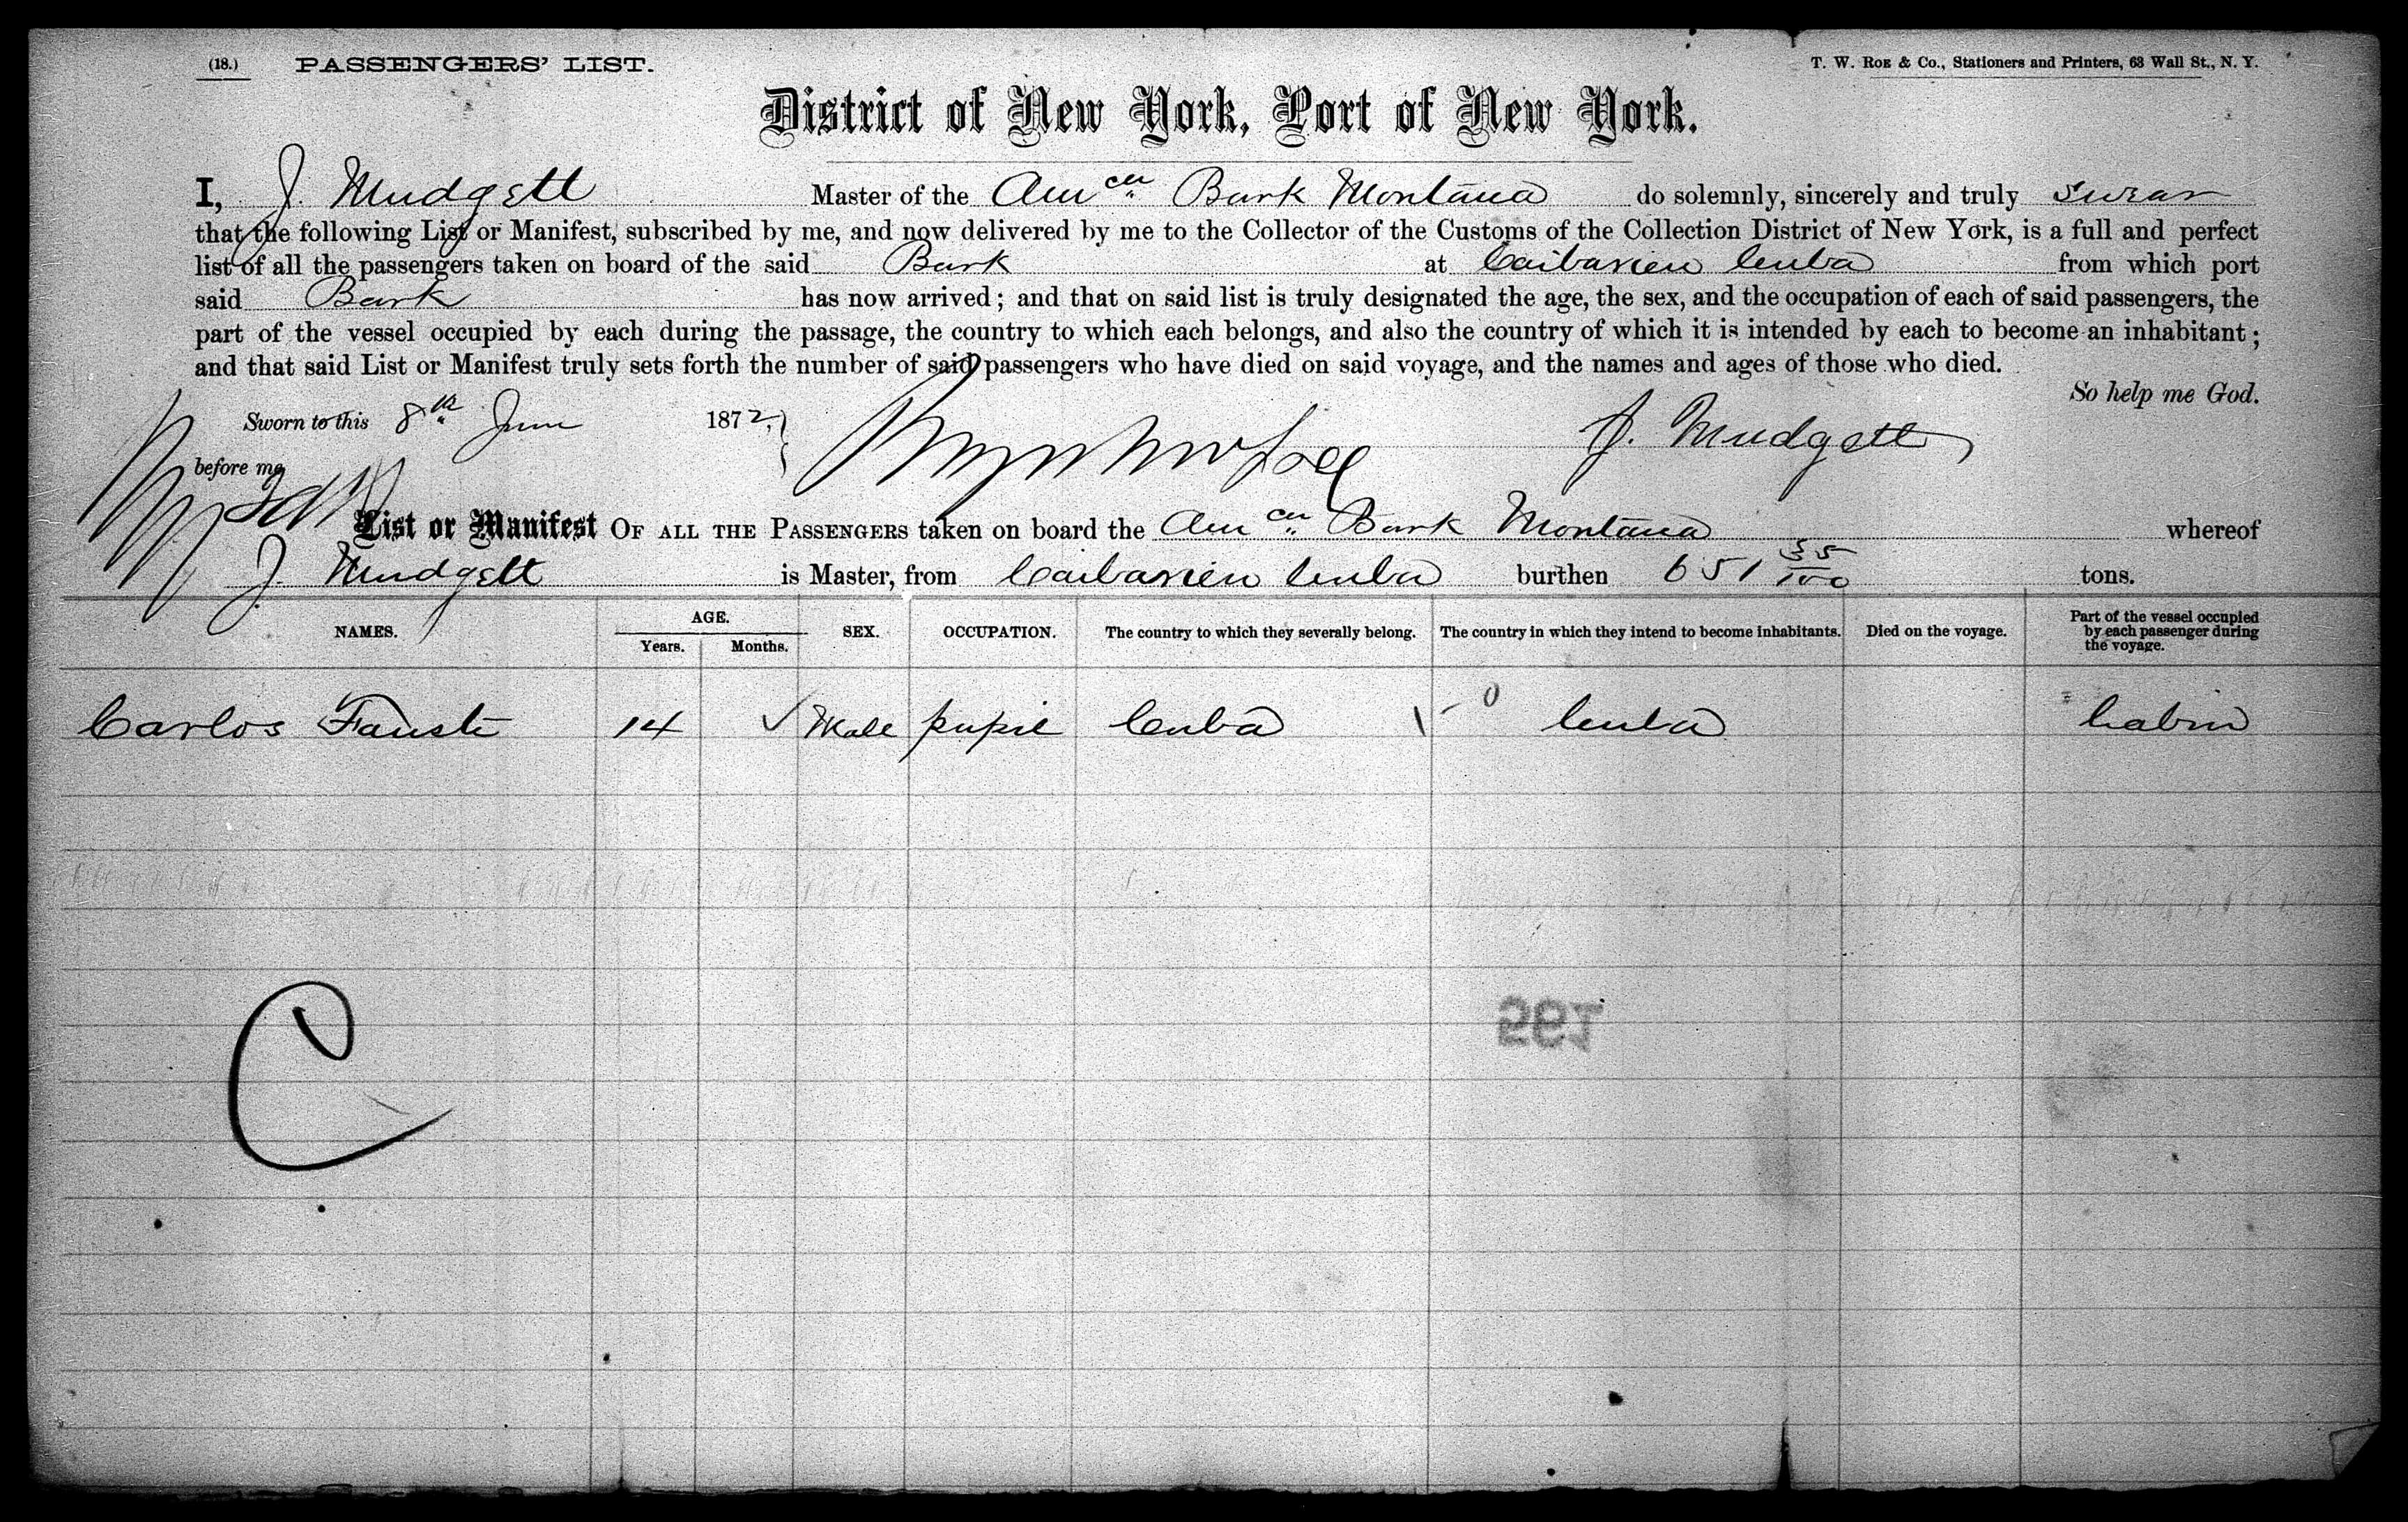 (18.) PASSENGERS' LIST. T. W. ROE & Co., Stationers and Printers, 63 Wall St., N. Y.
District of New York, Port of New York.
I, J. Mudgett Master of the Amcn Bark Montana do solemnly, sincerely and truly swear
that the following List or Manifest, subscribed by me, and now delivered by me to the Collector of the Customs of the Collection District of New York, is a full and perfect
list of all the passengers taken on board of the said Bark at Caibarien Cuba from which port
said Bark has now arrived; and that on said list is truly designated the age, the sex, and the occupation of each of said passengers, the
part of the vessel occupied by each during the passage, the country to which each belongs, and also the country of which it is intended by each to become an inhabitant;
and that said List or Manifest truly sets forth the number of said passengers who have died on said voyage, and the names and ages of those who died.
So help me God.
Sworn to this 8th June 1872, J. Mudgett
before me
List or Manifest OF ALL THE PASSENGERS taken on board the Amcn Bark Montana whereof
J. Mudgett is Master, from Caibarien Cuba burthen 651 55/100 tons.
NAMES. AGE. Years. Months. SEX. OCCUPATION. The country to which they severally belong. The country in which they intend to become inhabitants. Died on the voyage. Part of the vessel occupied by each passenger during the voyage.
Carlos Fauste 14 Male pupil Cuba 0 Cuba Cabin
C